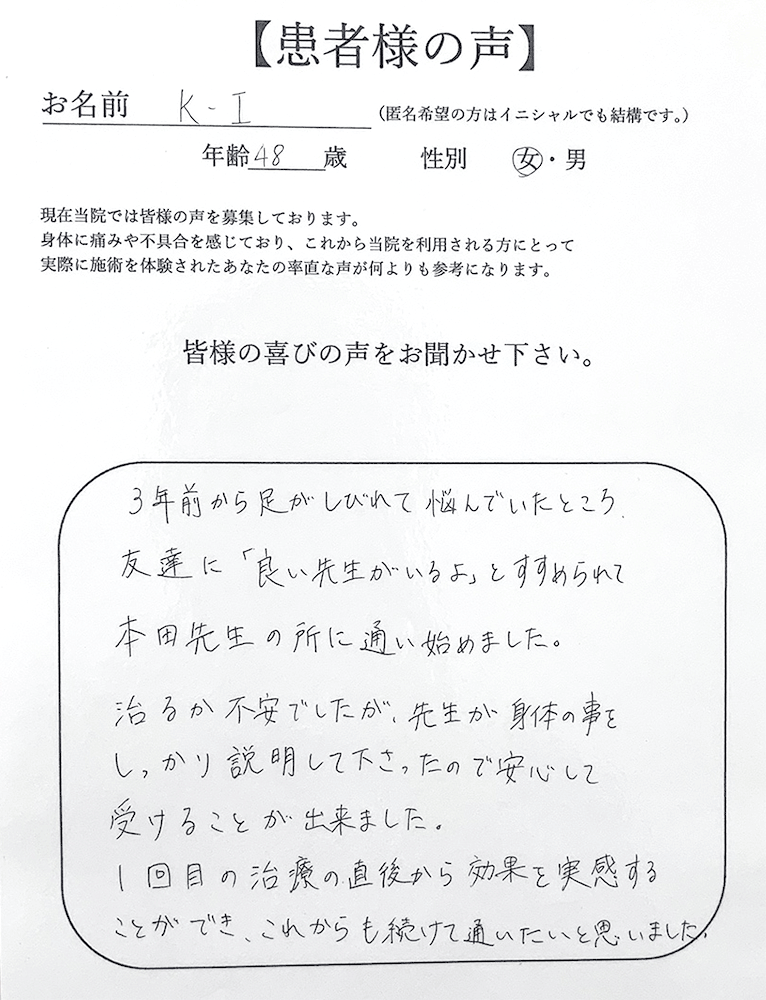 【患者様の声】
お名前 K-I (匿名希望の方はイニシャルでも結構です。)
年齢48歳 性別 女・男
現在当院では皆様の声を募集しております。
身体に痛みや不具合を感じており、これから当院を利用される方にとって
実際に施術を体験されたあなたの率直な声が何よりも参考になります。
皆様の喜びの声をお聞かせ下さい。
3年前から足がしびれて悩んでいたところ、
友達に「良い先生がいるよ」とすすめられて
本田先生の所に通い始めました。
治るか不安でしたが、先生が身体の事を
しっかり説明して下さったので安心して
受けることが出来ました。
1回目の治療の直後から効果を実感する
ことができ、これからも続けて通いたいと思いました。